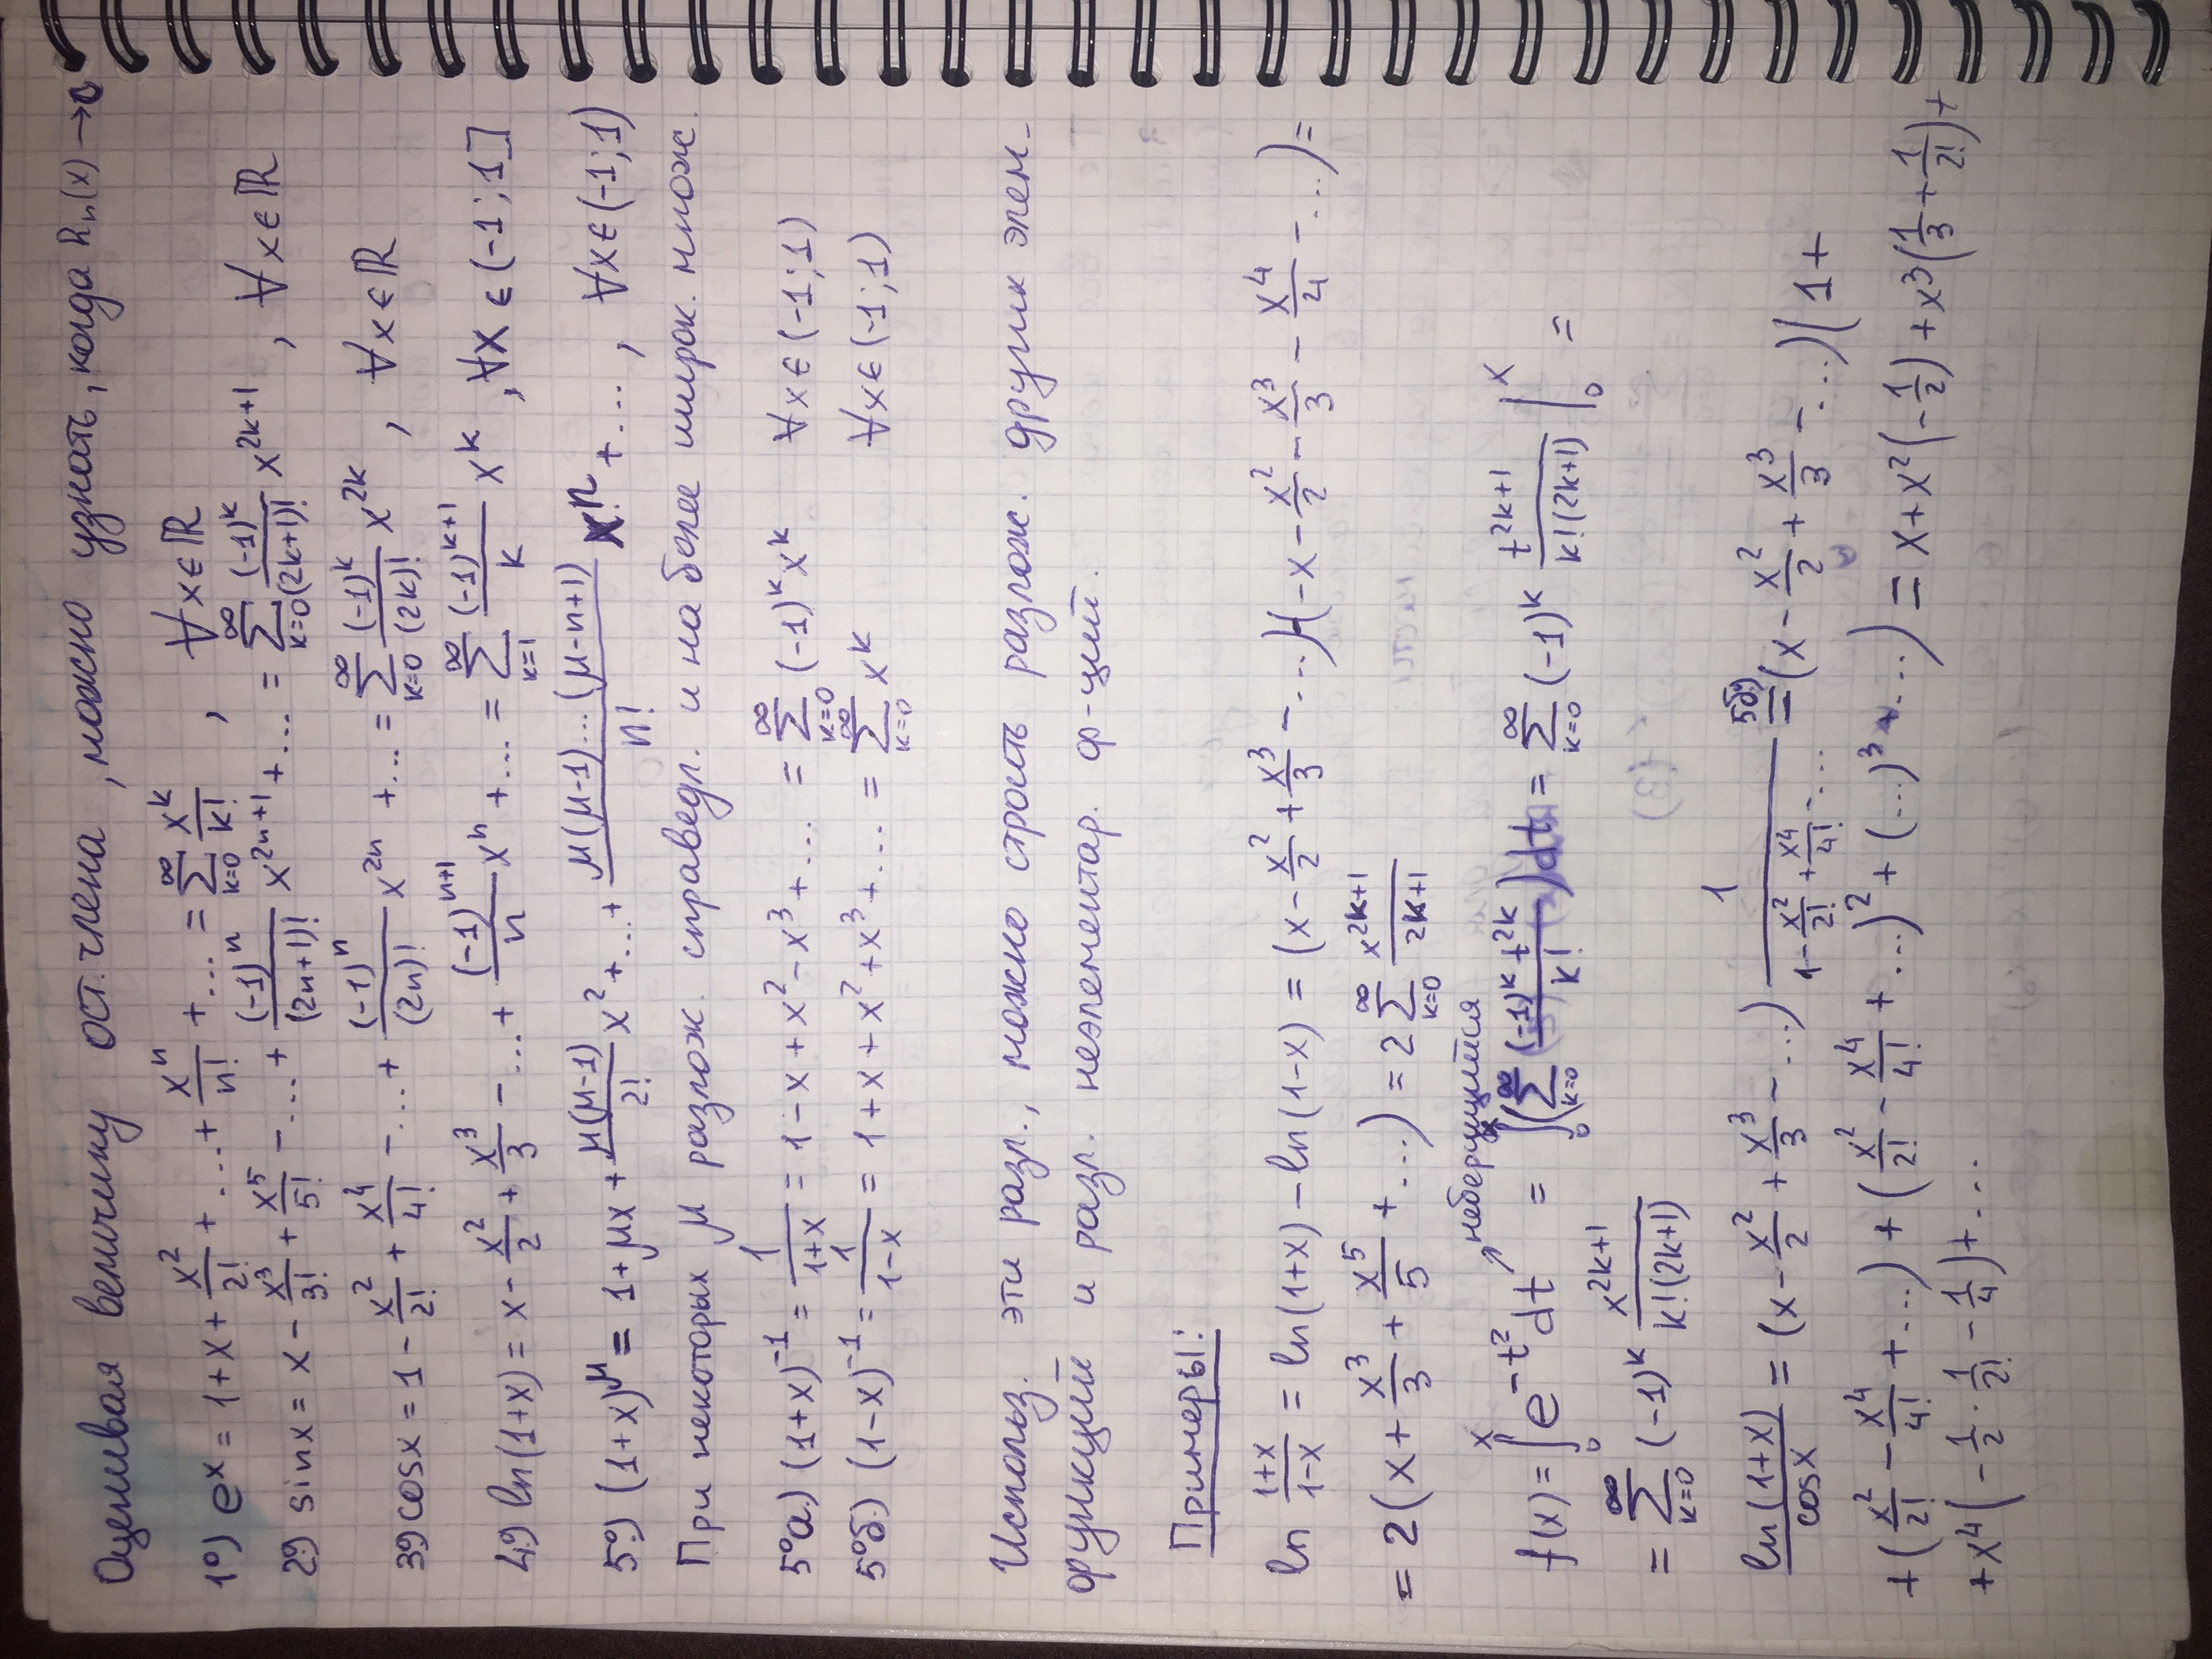 Оценивая величину ост. члена, можно узнать, когда Rₙ(x) → 0
1°) eˣ = 1 + x + x²/2! + ... + xⁿ/n! + ... = ∑_{k=0}^{∞} xᵏ/k! , ∀x∈ℝ
2°) sinx = x - x³/3! + x⁵/5! - ... + (-1)ⁿ/(2n+1)! x²ⁿ⁺¹ + ... = ∑_{k=0}^{∞} (-1)ᵏ/(2k+1)! x²ᵏ⁺¹ , ∀x∈ℝ
3°) cosx = 1 - x²/2! + x⁴/4! - ... + (-1)ⁿ/(2n)! x²ⁿ + ... = ∑_{k=0}^{∞} (-1)ᵏ/(2k)! x²ᵏ , ∀x∈ℝ
4°) ln(1+x) = x - x²/2 + x³/3 - ... + (-1)ⁿ⁺¹/n xⁿ + ... = ∑_{k=1}^{∞} (-1)ᵏ⁺¹/k xᵏ , ∀x ∈ (-1; 1]
5°) (1+x)^μ = 1 + μx + μ(μ-1)/2! x² + ... + μ(μ-1)...(μ-n+1)/n! xⁿ + ... , ∀x∈(-1; 1)
При некоторых μ разлож. справедл. и на более широк. множ.
5°а.) (1+x)⁻¹ = 1/(1+x) = 1 - x + x² - x³ + ... = ∑_{k=0}^{∞} (-1)ᵏxᵏ ∀x∈(-1; 1)
5°б.) (1-x)⁻¹ = 1/(1-x) = 1 + x + x² + x³ + ... = ∑_{k=0}^{∞} xᵏ ∀x∈(-1; 1)
Использ. эти разл., можно строить разлож. других элем-
функций и разл. неэлементар. ф-ций.
Примеры:
ln (1+x)/(1-x) = ln(1+x) - ln(1-x) = (x - x²/2 + x³/3 - ...) - (-x - x²/2 - x³/3 - x⁴/4 - ...) =
= 2(x + x³/3 + x⁵/5 + ...) = 2 ∑_{k=0}^{∞} x²ᵏ⁺¹/(2k+1)
неберущийся
f(x) = ∫₀ˣ e^{-t²} dt = ∫₀ˣ (∑_{k=0}^{∞} (-1)ᵏ t²ᵏ/k!) dt = ∑_{k=0}^{∞} (-1)ᵏ t²ᵏ⁺¹/(k!(2k+1)) |₀ˣ =
= ∑_{k=0}^{∞} (-1)ᵏ x²ᵏ⁺¹/(k!(2k+1))
ln(1+x)/cosx = (x - x²/2 + x³/3 - ...) 1/(1 - x²/2! + x⁴/4! - ...) =^{5б)} (x - x²/2 + x³/3 - ...)(1 +
+ (x²/2! - x⁴/4! + ...) + (x²/2! - x⁴/4! + ...)² + (...)³ + ...) = x + x²(-1/2) + x³(1/3 + 1/2!) +
+ x⁴(-1/2 · 1/2! - 1/4) + ...